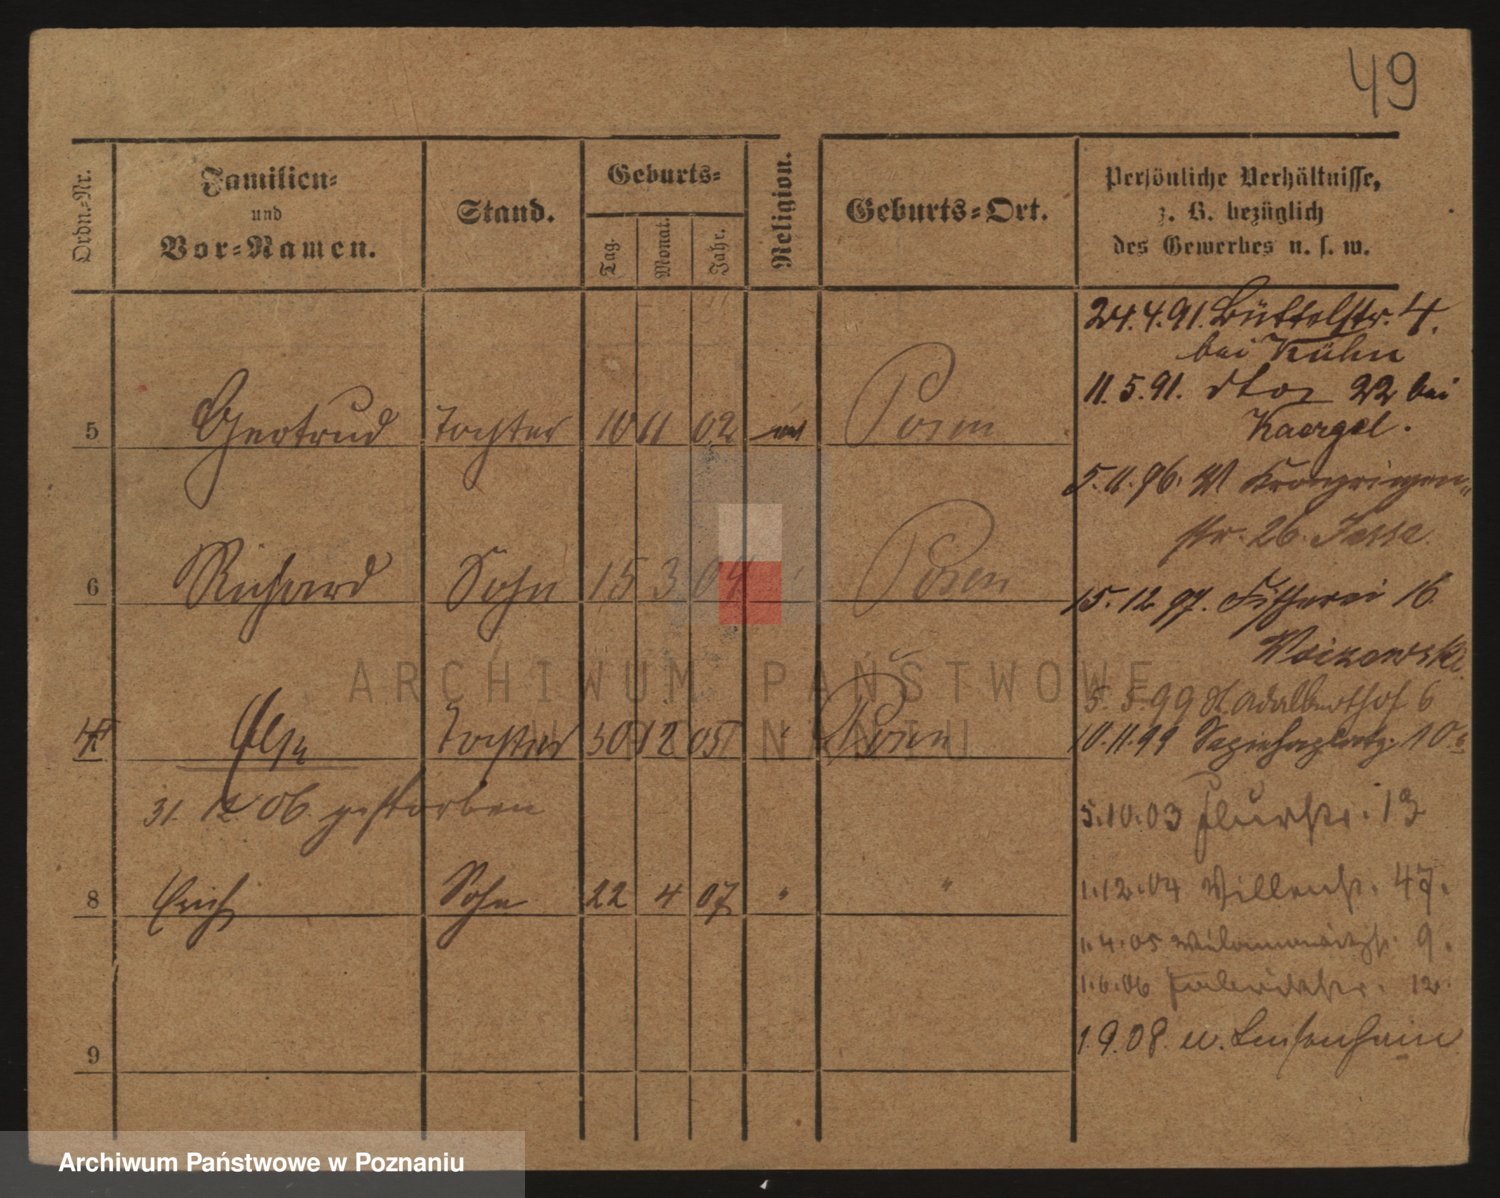 49
Ordn.-Nr.
Familien-
und
Vor-Namen.
Stand.
Geburts-
Tag.
Monat.
Jahr.
Religion.
Geburts-Ort.
Persönliche Verhältnisse,
z. B. bezüglich
des Gewerbes u. s. w.
5 Gertrud Tochter 10 11 02 Posen
6 Richard Sohn 15 3 04 Posen
Else Tochter 30 12 05 " Posen
31. 12 06. gestorben
8 Erich Sohn 22 4 07 " "
9
24.4.91. Büttelstr. 4.
bei Kühn
11.5.91. dto 22 bei
Kaergel.
5.11.96. W Kronprinzen-
str. 26.
15.12.97. Fischerei 16.
5.5.99 St. Adalberthof 6
10.11.99 Sapiehaplatz 10a
5.10.03 Flurstr. 13
1.12.04 Villenstr. 47.
1.4.05 9.
1.6.06 Fabrikstr. 12.
1.9.08. n. Luisenhain
ARCHIWUM PAŃSTWOWE
W POZNANIU
Archiwum Państwowe w Poznaniu